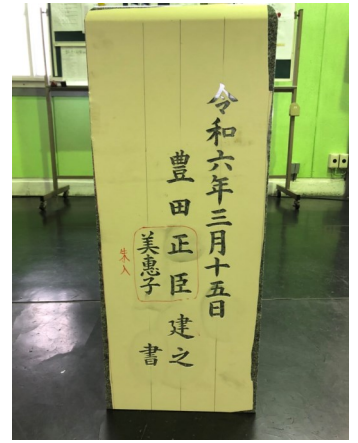 令和六年三月十五日
豊田正臣建之
美惠子書
朱入